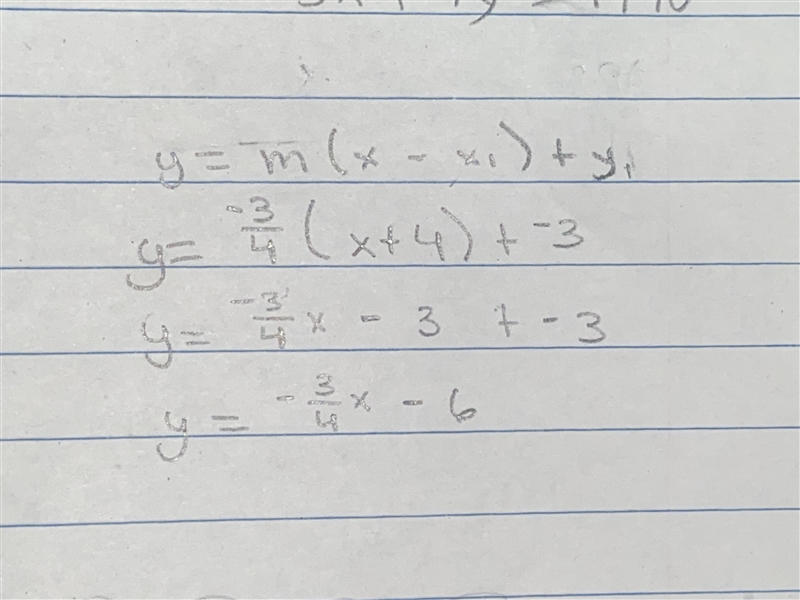 y = m(x - x₁) + y₁
y = -3/4 (x+4) + -3
y = -3/4 x - 3 + -3
y = -3/4 x - 6